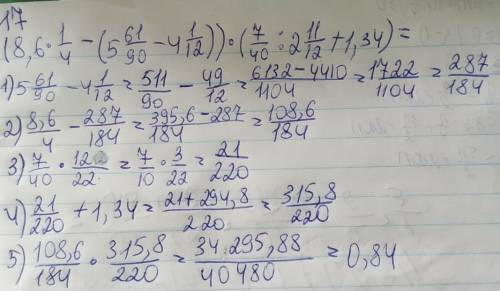 17
(8,6 · 1/4 - (5 61/90 - 4 1/12)) · (7/40 : 2 11/12 + 1,34) =
1) 5 61/90 - 4 1/12 = 511/90 - 49/12 = 6132-4410/1104 = 1722/1104 = 287/184
2) 8,6/4 - 287/184 = 395,6-287/184 = 108,6/184
3) 7/40 · 12/22 = 7/10 · 3/22 = 21/220
4) 21/220 + 1,34 = 21+294,8/220 = 315,8/220
5) 108,6/184 · 315,8/220 = 34.295,88/40480 = 0,84